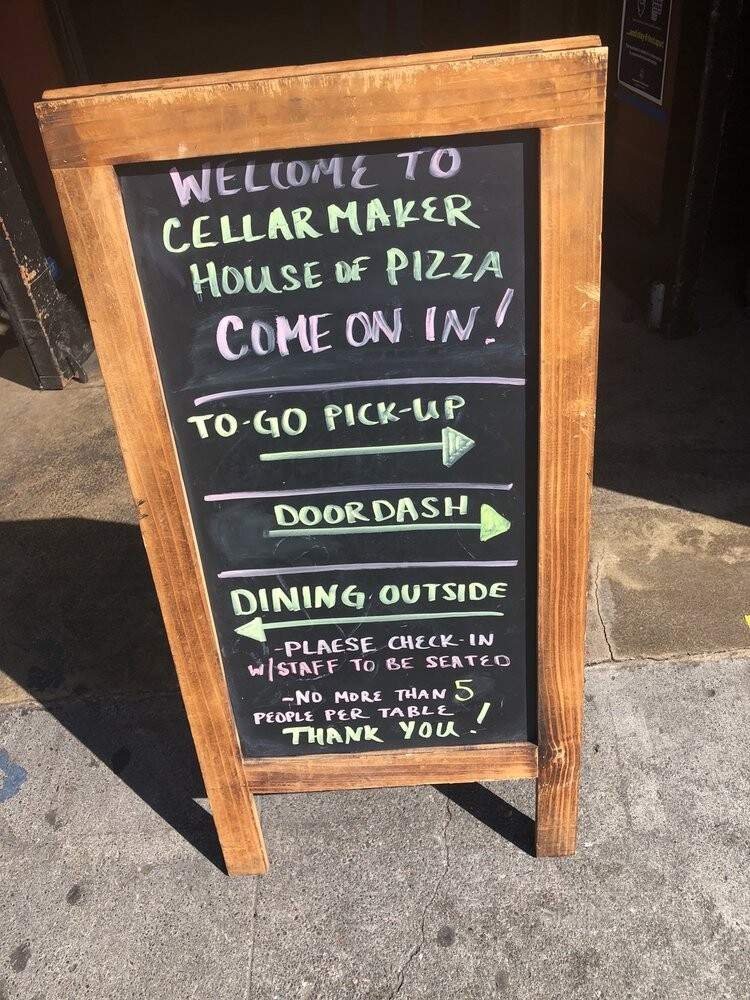 WELCOME TO
CELLAR MAKER
HOUSE OF PIZZA
COME ON IN!
TO-GO PICK-UP
DOORDASH
DINING OUTSIDE
-PLAESE CHECK-IN
W/STAFF TO BE SEATED
-NO MORE THAN 5
PEOPLE PER TABLE
THANK YOU!